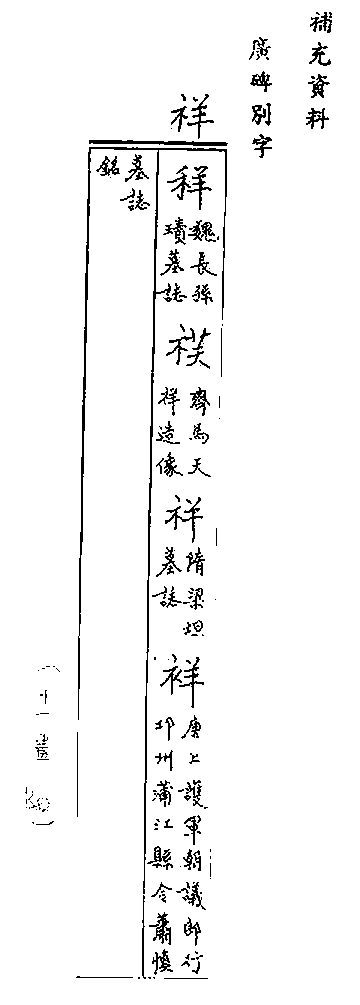 補充資料
廣碑別字
祥
祥
魏長孫
瓆墓誌
祥
齊馬天
祥造像
祥
隋梁坦
墓誌
祥
唐上護軍朝議郎行
邛州蒲江縣令蕭慎
墓誌
銘
(十一畫